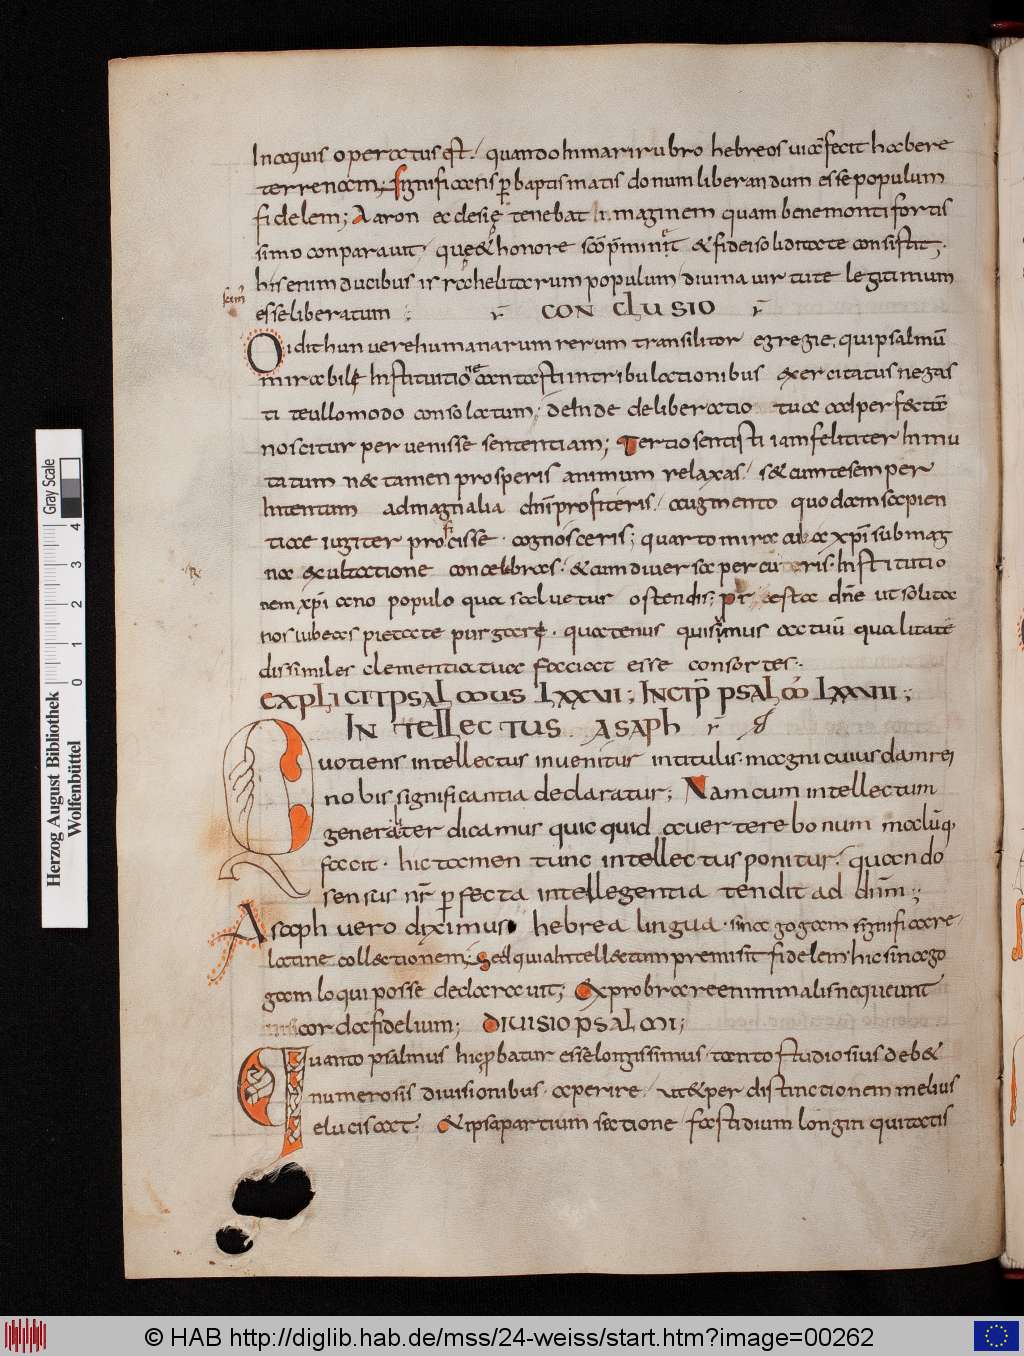 In aquis operatus est. quando in mari rubro hebreos viã fecit habere
terrenam; Significans p baptismatis donum liberandum esse populum
fidelem; Aaron ecclesię tenebat imaginem quam bene monti fortis
simo conparavit. quę & honore scõ pminet & fidei soliditate consistit.
his enim ducibus israhelitarum populum divina virtute legitimum
esse liberatum CONCLUSIO
Vidit hunc vere humanarum rerum transilitor egregie, qui psalmũ
mirabilę Institutione cantasti in tribulationibus exercitatus negas
ti te ullo modo consolatum; deinde deliberatio tua ad perfectã
noscitur pervenisse sententiam; Tertio sentisti iam feliciter Inmu
tatum nec tamen prosperis animum relaxas. sed cum te semper
Intentum ad magnalia dni profiteris. augmento quodam sapien
tiae iugiter processe cognosceris; quarto mira cuncta xpi sub mag
na exultatione concelebras. & cum diversa percurreris. Institutio
nem xpi a uno populo quae salvetur ostendis; Pr aesta dne ut solita
nos iubeas pietate purgare. quatenus qui sumus actuũ qualitate
dissimiles clementia tua faciat esse consortes.
EXPLICIT PSALMUS LXXVII; INCIP PSALM LXXVIII;
INTELLECTUS ASAPH
Quotiens intellectus invenitur in titulis. magni cuiusdam rei
nobis significantia declaratur; Nam cum intellectum
generaliter dicamus quicquid avertere bonum malũq
facit. hic tamen tunc intellectus ponitur. quando
sensus nr pfecta intellegentia tendit ad dnm;
Asaph vero diximus hebrea lingua. sinagogam significare.
latine collectionem; Sed quia Intellectum premisit fidelem. hic sinago
gam loqui posse declaravit; Exprobrare enim malis nequeunt
nisi corda fidelium; DIVISIO PSALMI;
Quanto psalmus hic pbatur esse longissimus. tanto studiosius deb&
numerosis divisionibus. aperire. ut & per distinctionem melius
elucis cat. & ipsa partium sectione fastidium longin quitatis
Herzog August Bibliothek
Wolfenbüttel
0 1 2 3 4
Gray Scale
© HAB http://diglib.hab.de/mss/24-weiss/start.htm?image=00262